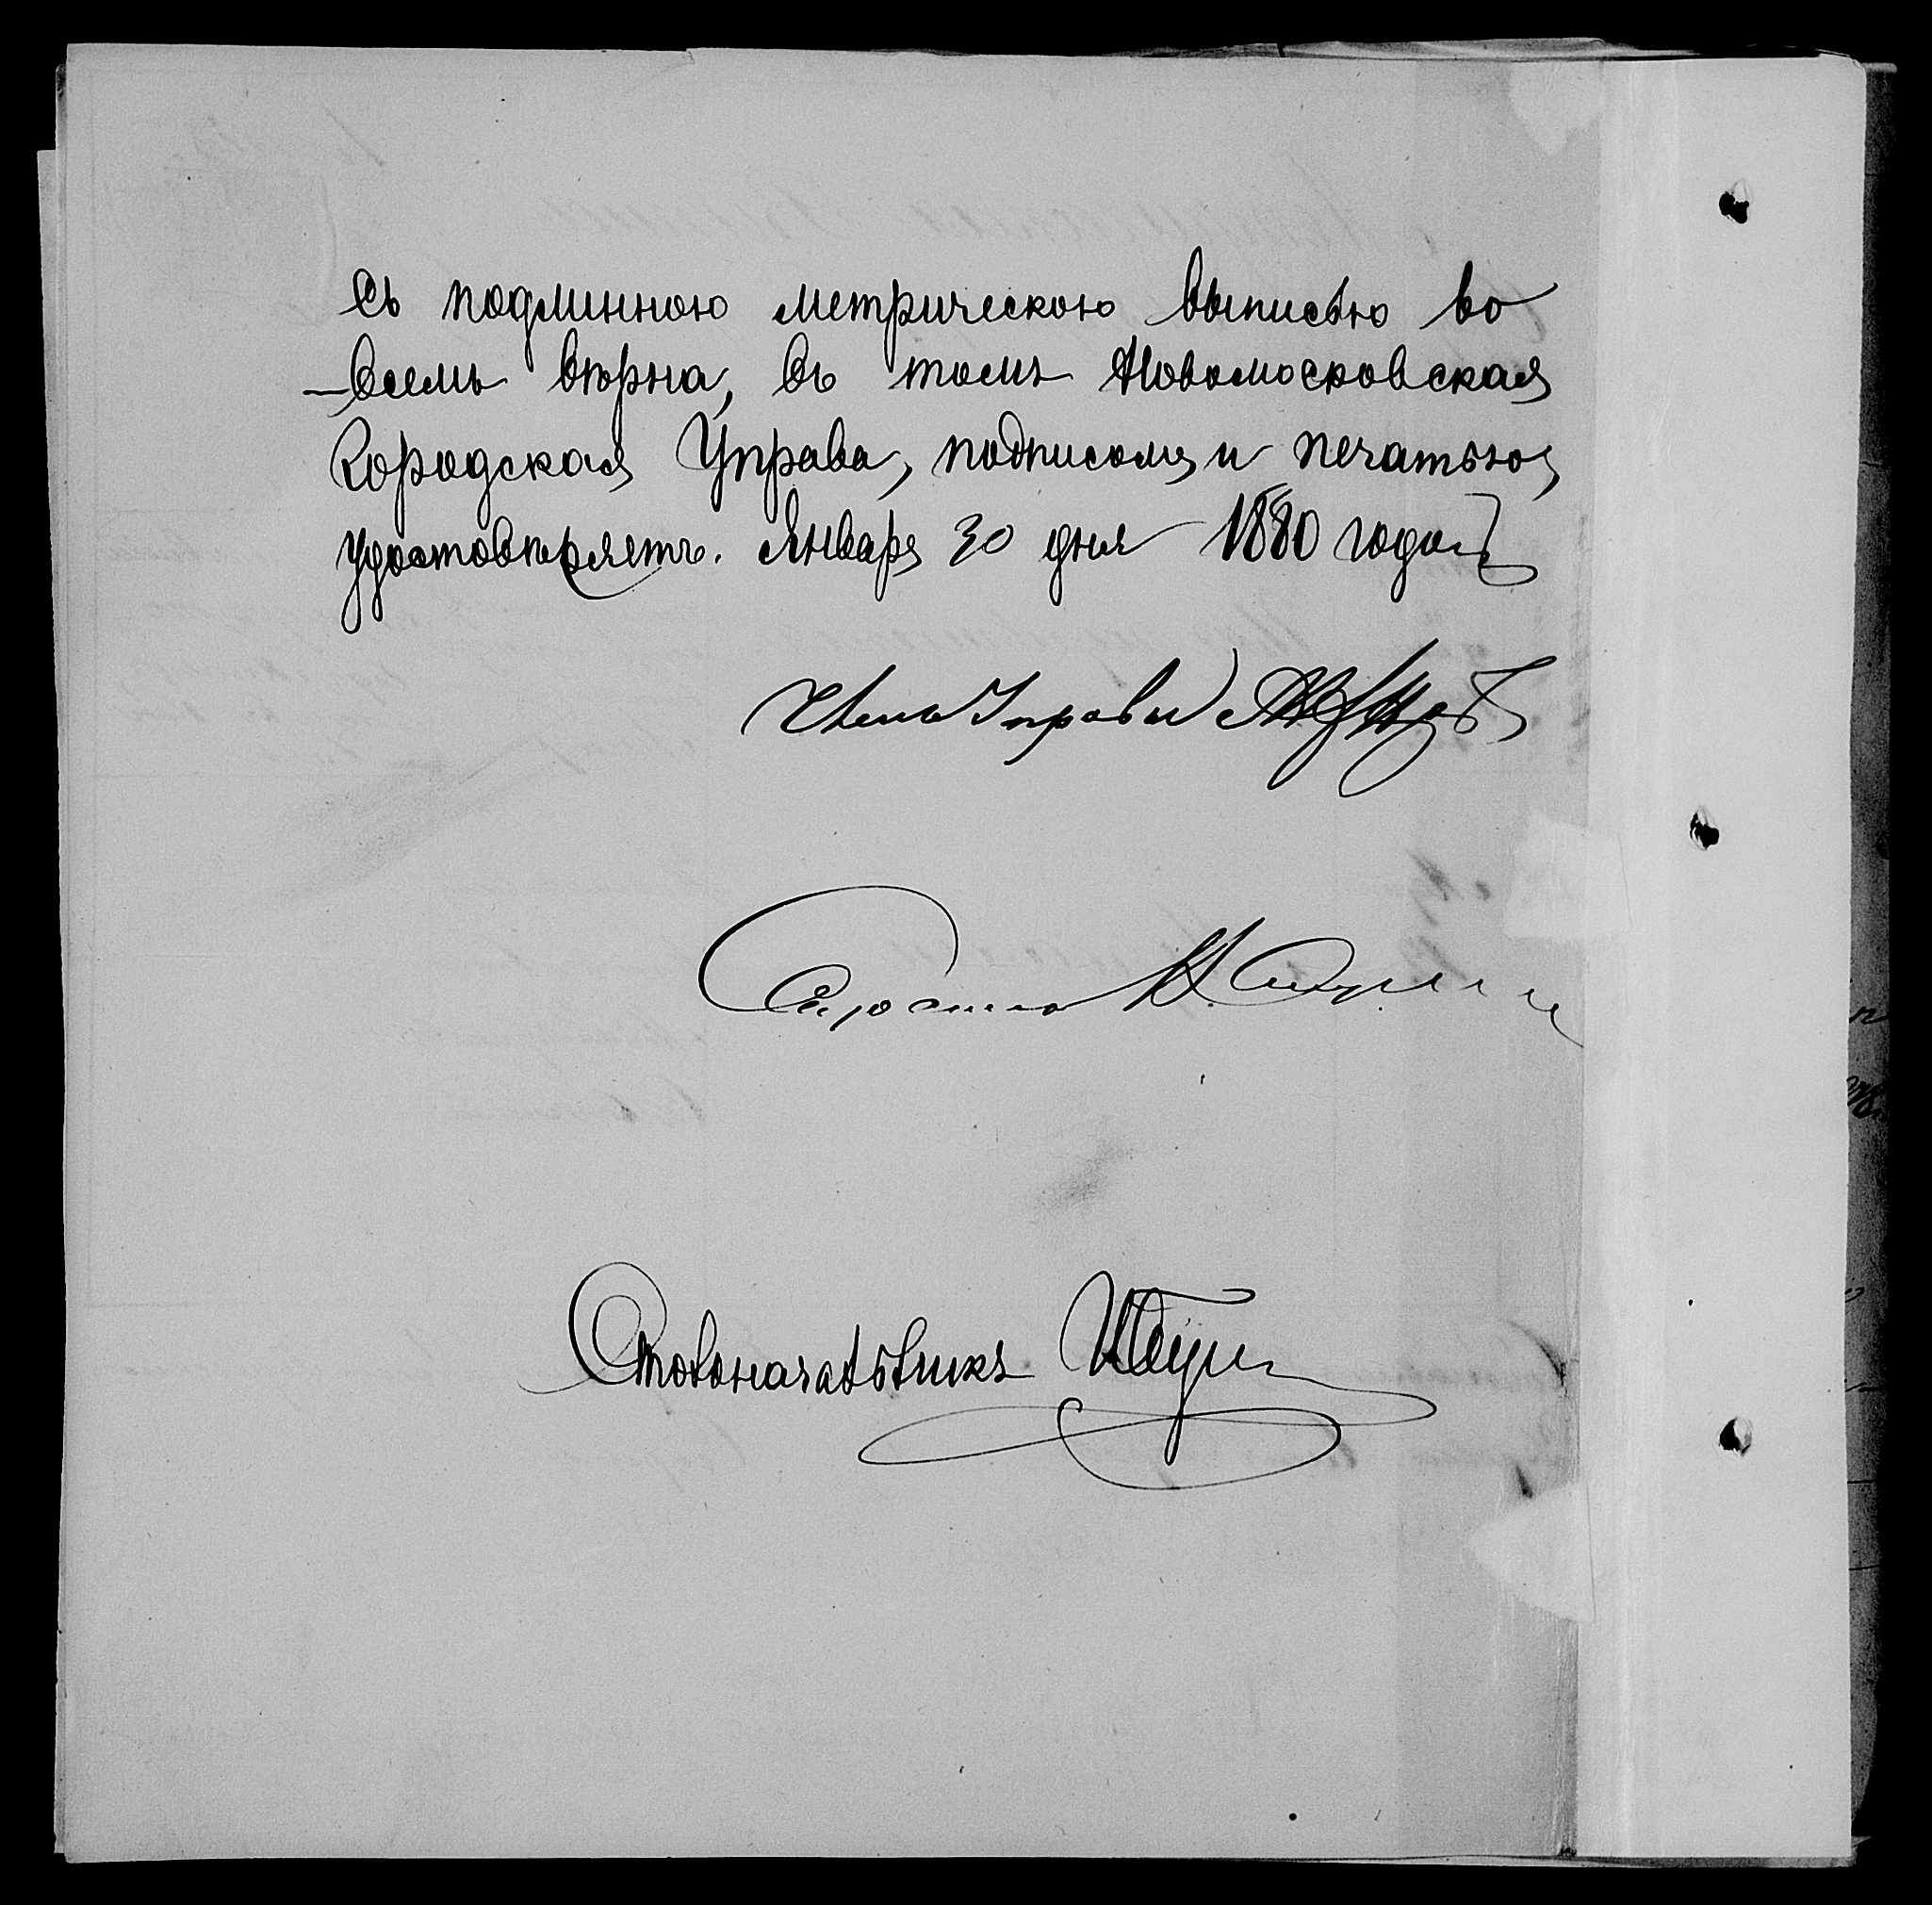 Съ подлинною метрическою выписью во
всемъ вѣрна, въ томъ Новомосковская
Городская Управа, подписомъ и печатью,
удостовѣряетъ. Января 30 дня 1880 года
Членъ Управы
Староста
Столоначальникъ